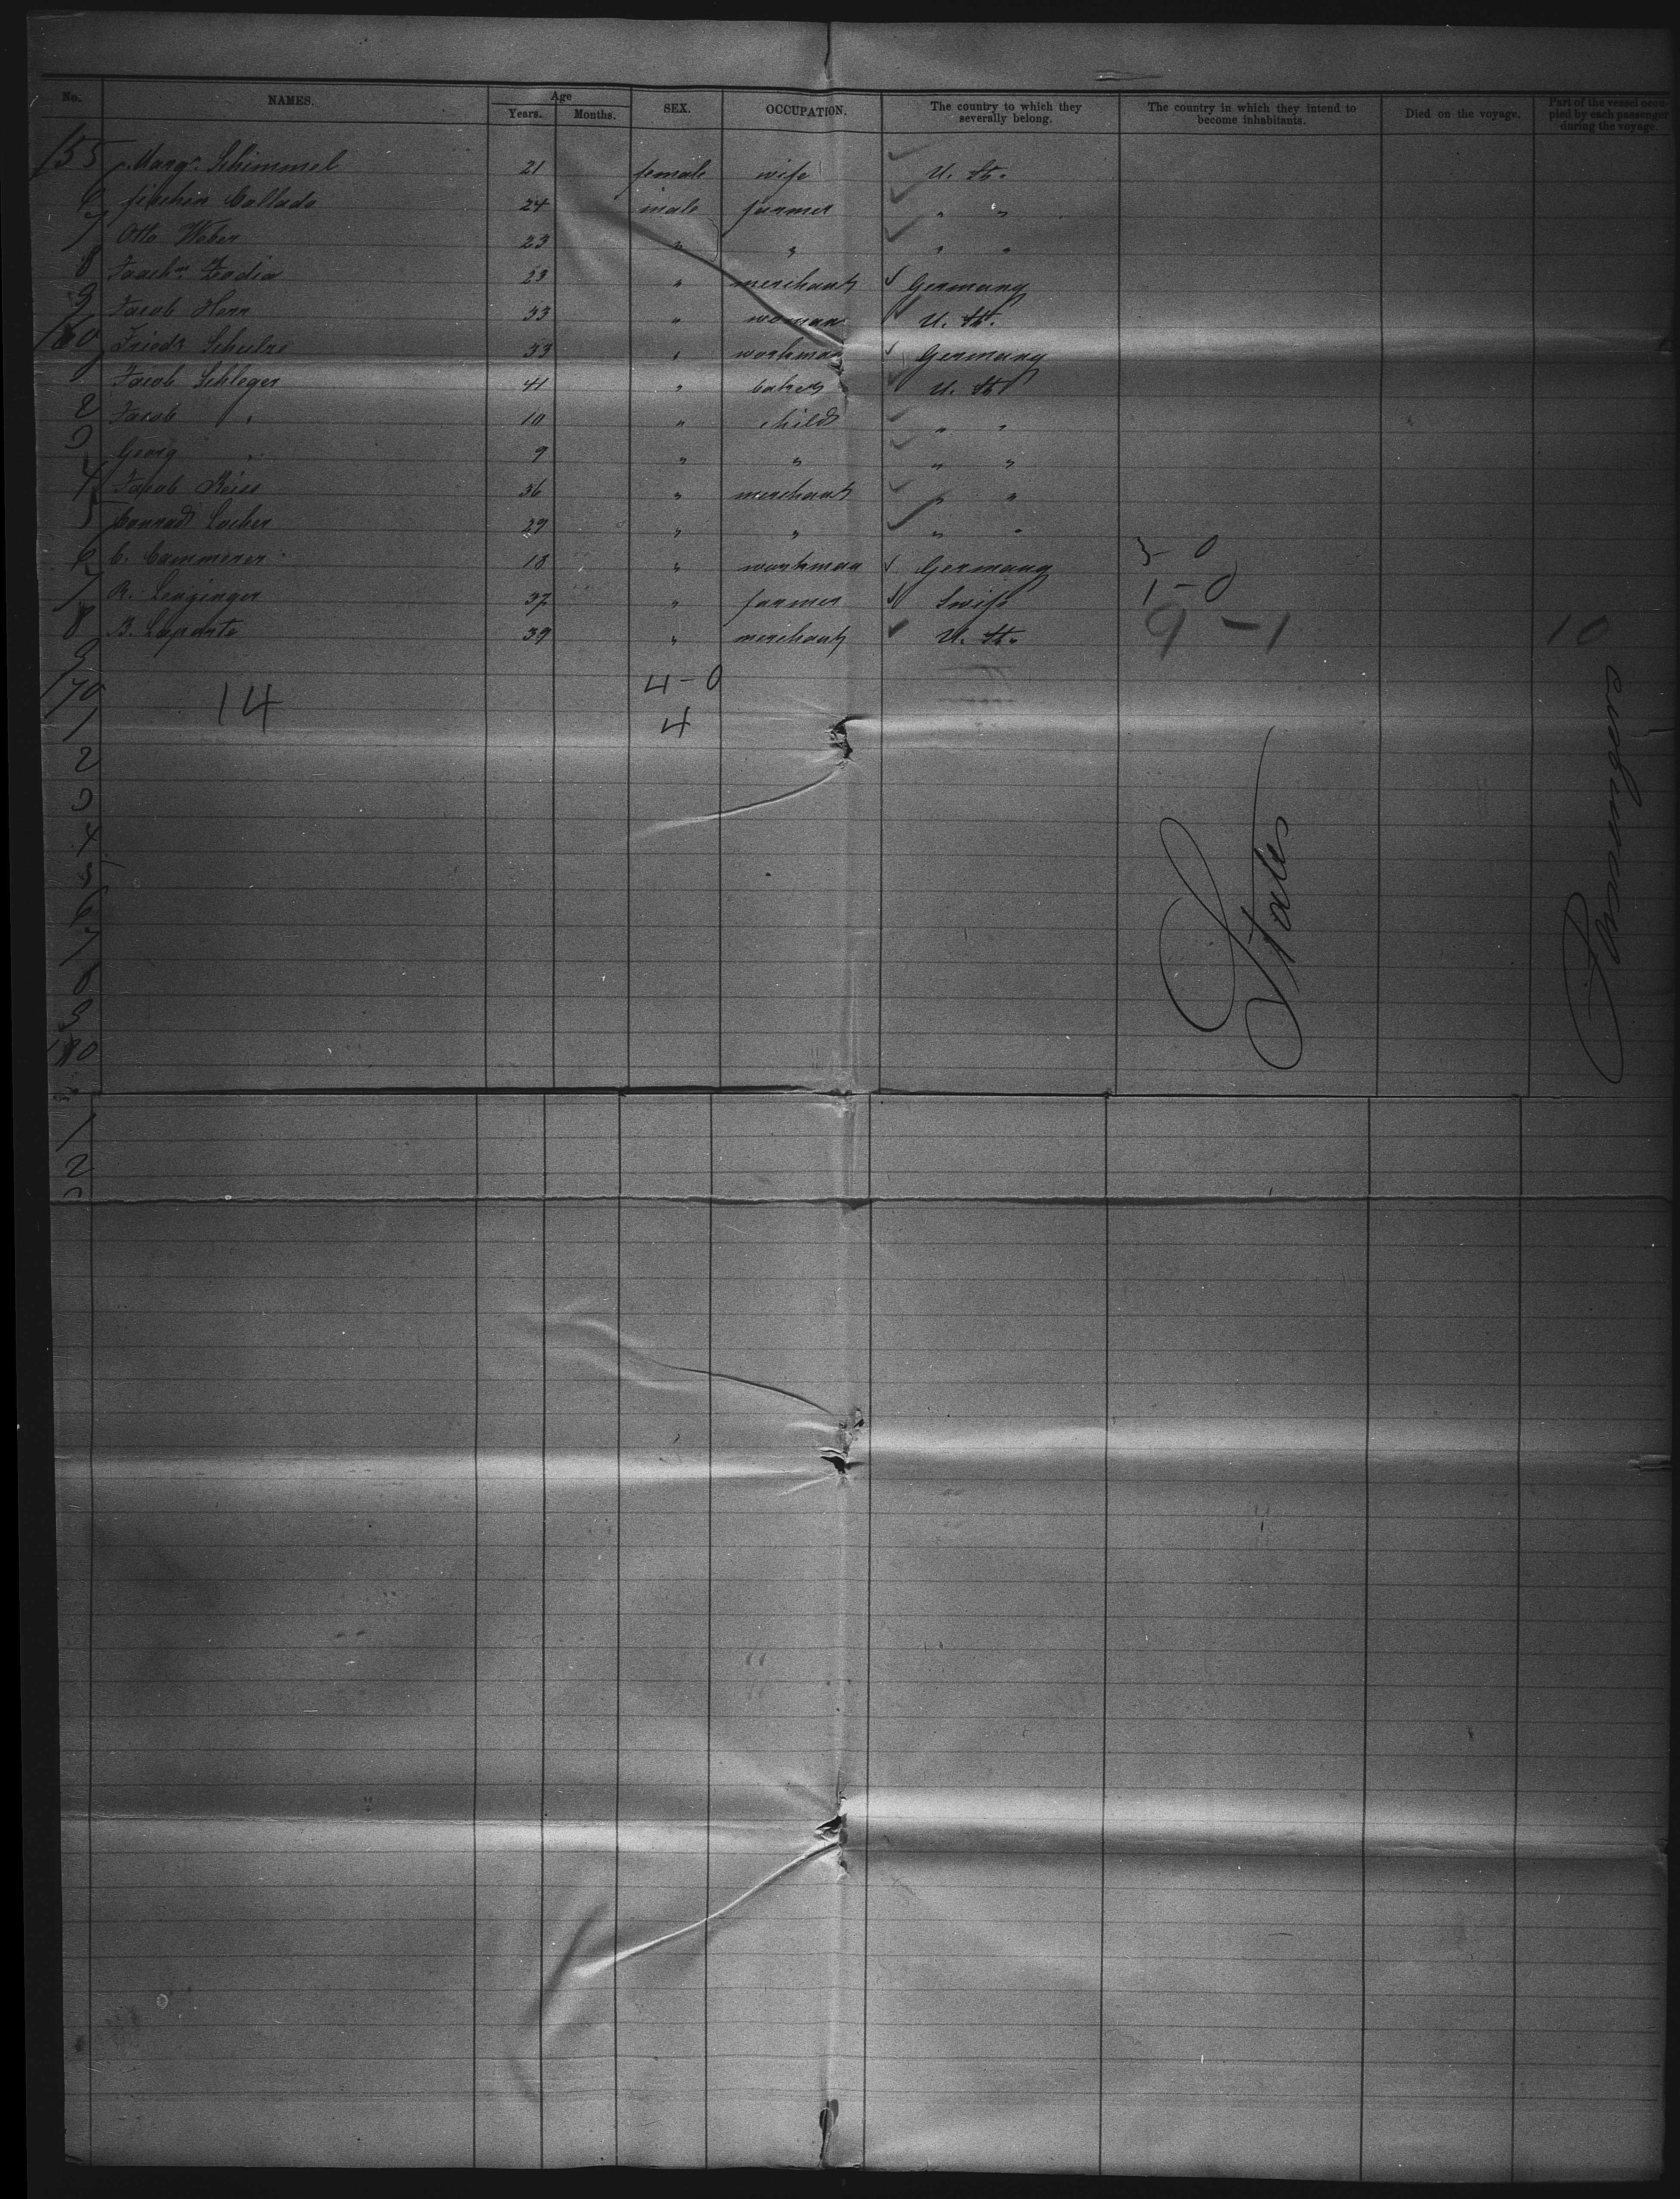 No. NAMES. Age Years. Months. SEX. OCCUPATION. The country to which they severally belong. The country in which they intend to become inhabitants. Died on the voyage. Part of the vessel occupied by each passenger during the voyage.
155 Margr. Schimmel 21 female wife U. St.
6 Collado 24 male farmer " "
7 Otto Weber 23 " " " "
8 23 " merchant Germany
9 Jacob Herr 33 " U. St.
160 Friedr Schulze 33 " workman Germany
Jacob Schleger 41 " baker U. St.
2 Jacob " 10 " child " "
3 Georg " 9 " " " "
4 Jacob Reiss 36 " merchant " "
5 Conrad Locher 29 " " " "
6 C. Cammerer 18 " workman Germany 3-0
7 R. Lenzinger 37 " farmer Swiss 1-0
8 B. Laporte 39 " merchant U. St. 9-1 10
9
170 14 4-0
1 4
2
3
4
5
6
7
8
9
180
1
2
3
States
Passengers